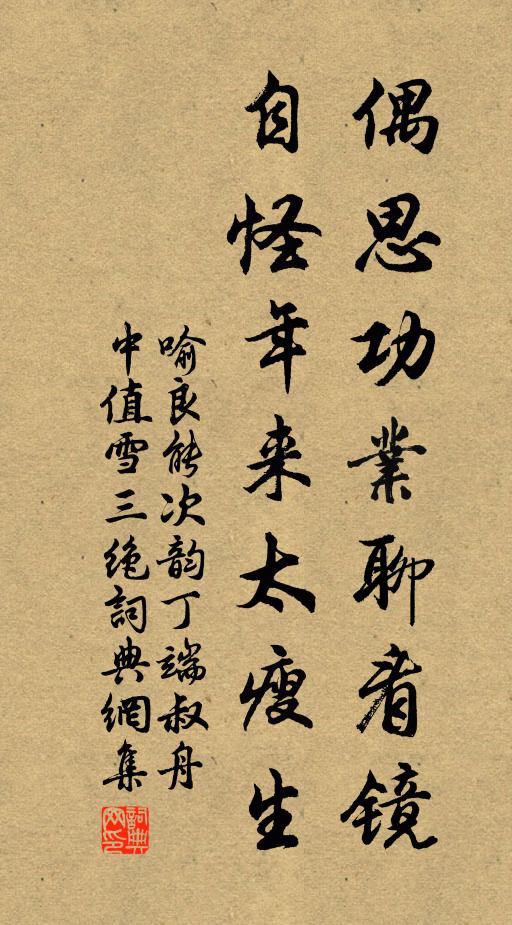 偶思功業聊看镜
自怪年来太瘦生
喻良能次韵丁端叔舟
中值雪三绝詞典網集
詞典网印